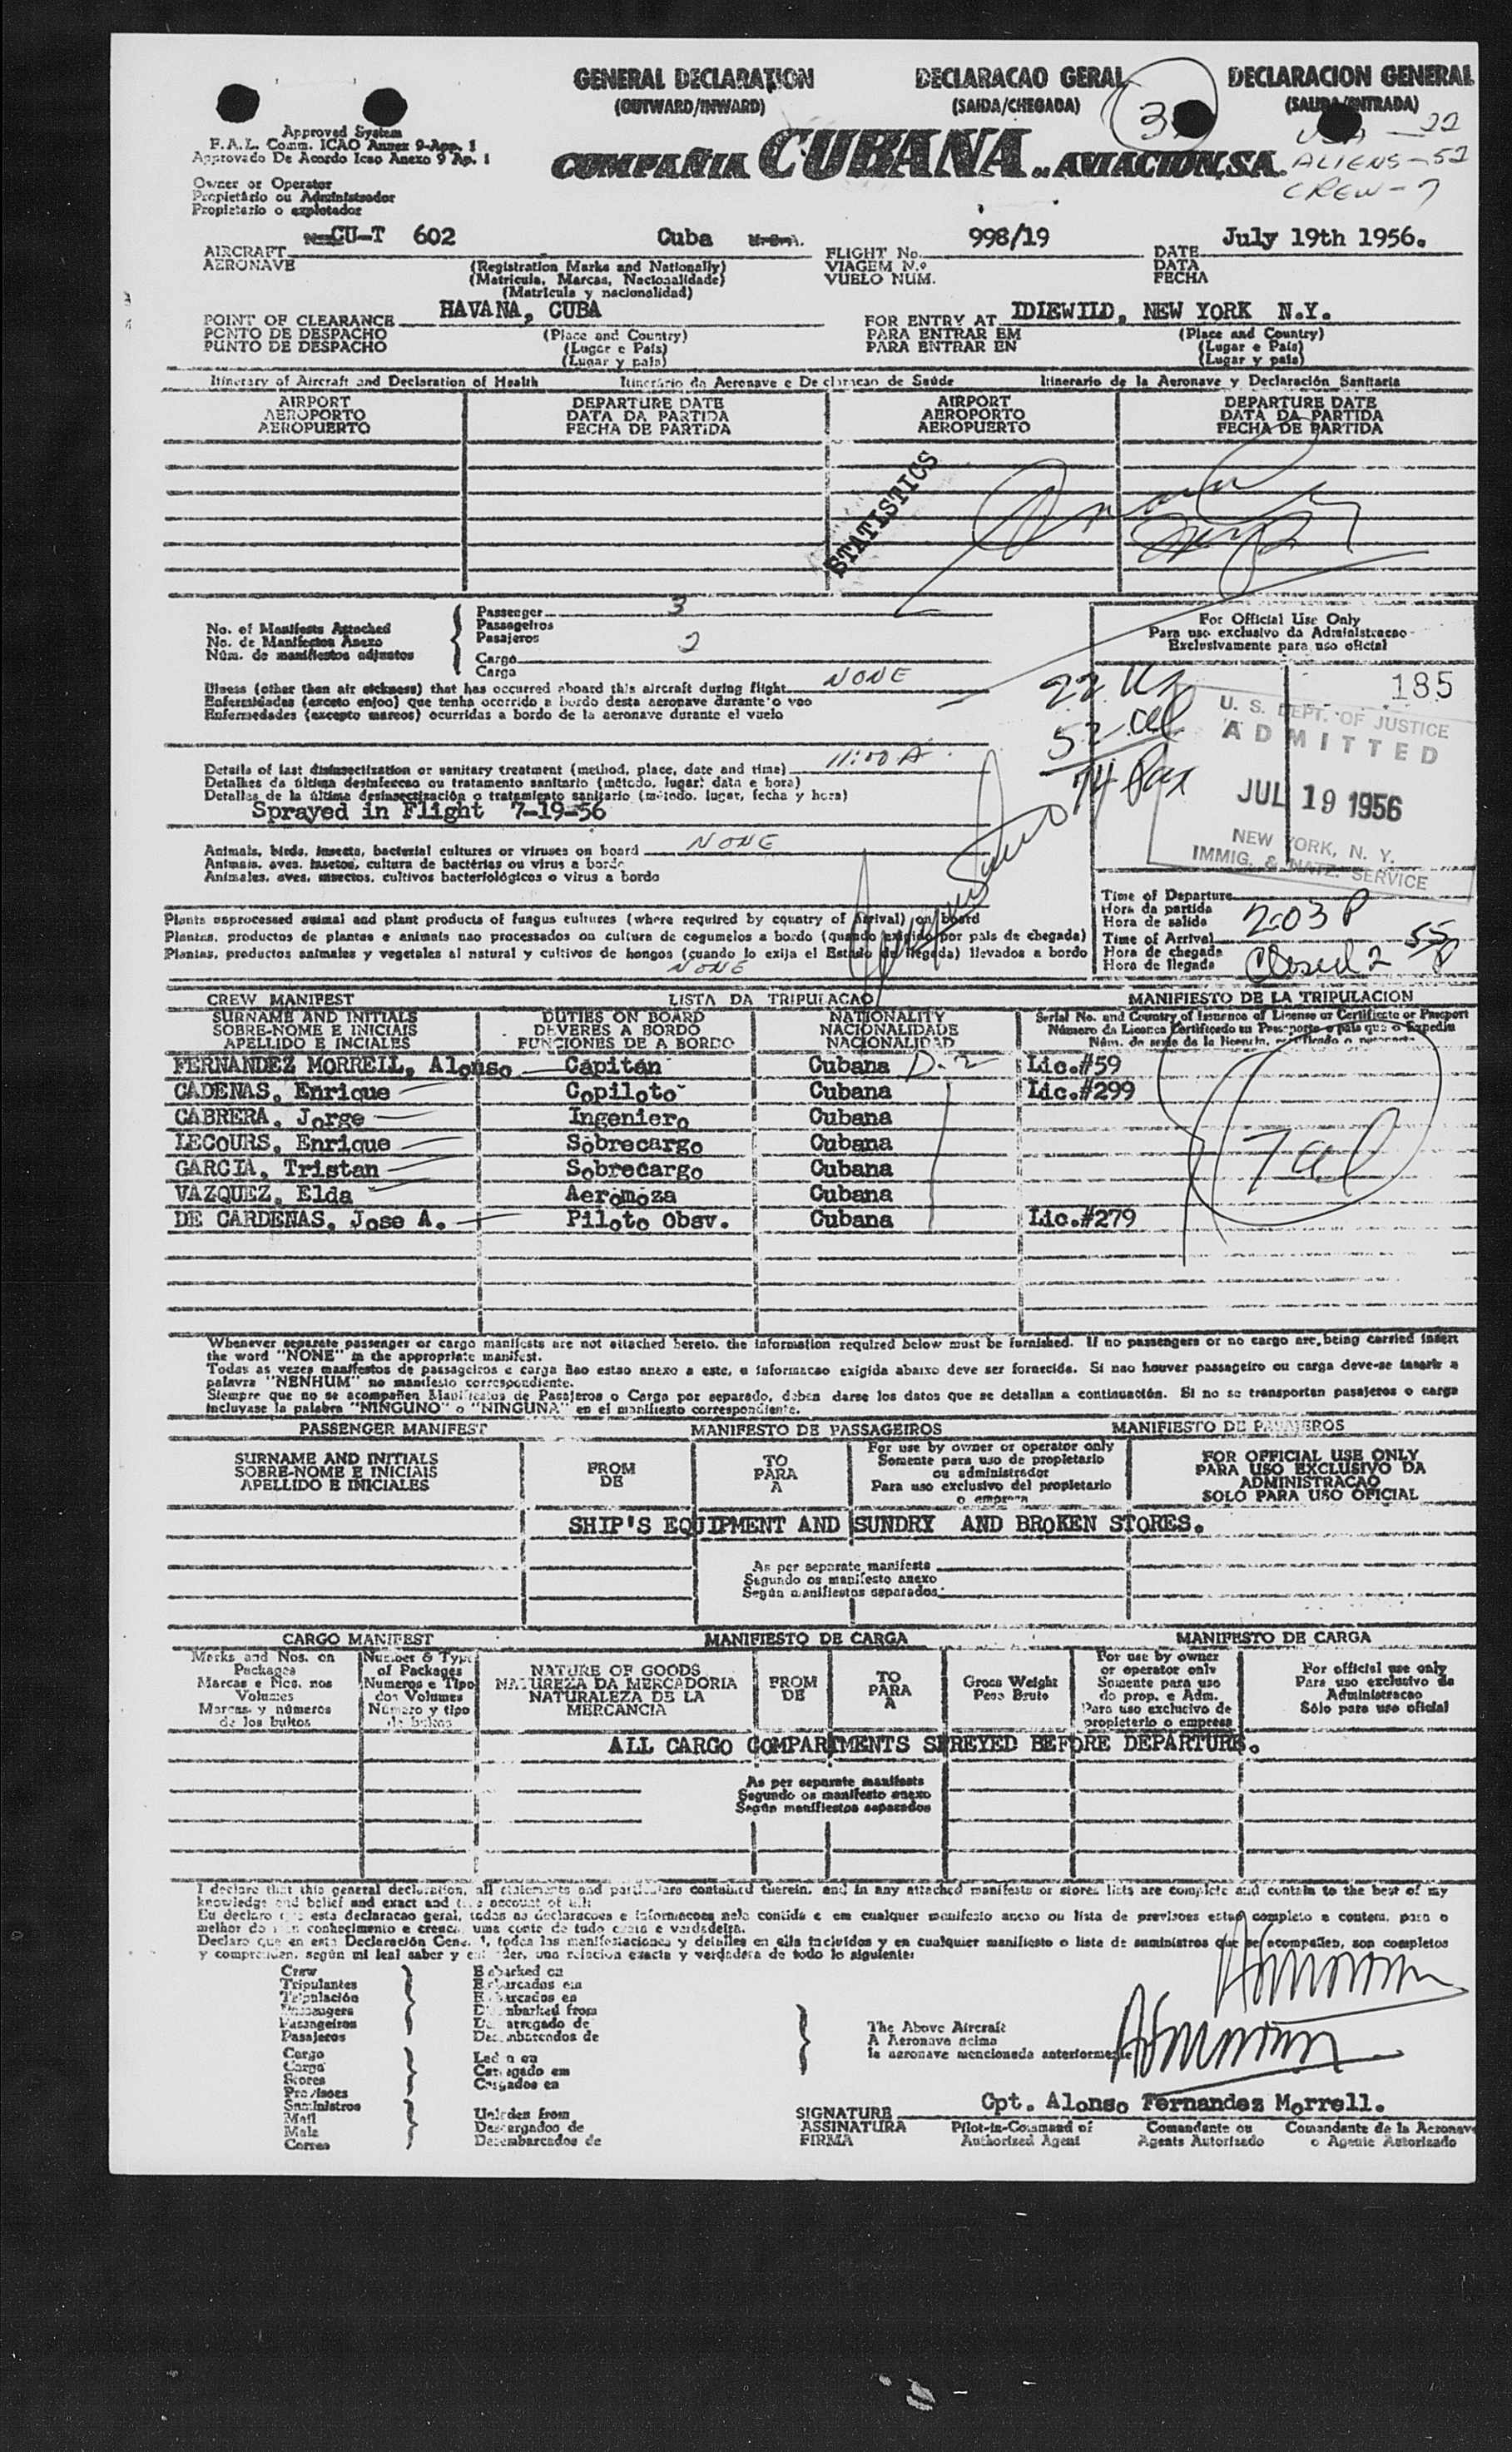 GENERAL DECLARATION
(OUTWARD/INWARD)
DECLARACAO GERAL
(SAIDA/CHEGADA)
DECLARACION GENERAL
(SALIDA/ENTRADA)
3
Approved System
F.A.L. Comm. ICAO Annex 9-App. 1
Approvado De Acordo Icao Anexo 9 Ap. 1
COMPAÑIA CUBANA DE AVIACION, S.A.
USA - 22
ALIENS - 52
CREW - 7
Owner or Operator
Propietário ou Administsador
Propietario o explotador
CU-T 602
Cuba
998/19
July 19th 1956.
AIRCRAFT
AERONAVE
(Registration Marks and Nationally)
(Matricula, Marcas, Nacionalidade)
(Matricula y nacionalidad)
FLIGHT No.
VIAGEM N.º
VUELO NUM.
DATE
DATA
FECHA
HAVANA, CUBA
IDIEWILD, NEW YORK N.Y.
POINT OF CLEARANCE
PONTO DE DESPACHO
PUNTO DE DESPACHO
(Place and Country)
(Lugar e Pais)
(Lugar y pais)
FOR ENTRY AT
PARA ENTRAR EM
PARA ENTRAR EN
(Place and Country)
(Lugar e Pais)
(Lugar y pais)
Itinerary of Aircraft and Declaration of Health
Itinerário da Aeronave e Declaracao de Saúde
Itinerario de la Aeronave y Declaración Sanitaria
AIRPORT
AEROPORTO
AEROPUERTO
DEPARTURE DATE
DATA DA PARTIDA
FECHA DE PARTIDA
AIRPORT
AEROPORTO
AEROPUERTO
DEPARTURE DATE
DATA DA PARTIDA
FECHA DE PARTIDA
STATISTICS
No. of Manifests Attached
No. de Manifestos Anexo
Núm. de manifiestos adjuntos
Passenger 3
Passageiros
Pasajeros
Cargo 2
Carga
For Official Use Only
Para uso exclusivo da Administracao
Exclusivamente para uso oficial
Illness (other than air sickness) that has occurred aboard this aircraft during flight NONE
Enfermidades (exceto enjoo) que tenha ocorrido a bordo desta aeronave durante o voo
Enfermedades (excepto mareos) ocurridas a bordo de la aeronave durante el vuelo
22 Us
52 al
74 Pax
185
U. S. DEPT. OF JUSTICE
ADMITTED
JUL 19 1956
NEW YORK, N. Y.
IMMIG. & NATZ. SERVICE
Details of last disinsectization or sanitary treatment (method, place, date and time) 11:00 A
Detalhes da última desinfeccao ou tratamento sanitario (método, lugar, data e hora)
Detalles de la última desinsectización o tratamiento sanitario (método, lugar, fecha y hora)
Sprayed in Flight 7-19-56
Animals, birds, insects, bacterial cultures or viruses on board NONE
Animais, aves, insetos, cultura de bactérias ou virus a bordo
Animales, aves, insectos, cultivos bacteriológicos o virus a bordo
Plants unprocessed animal and plant products of fungus cultures (where required by country of Arrival) on board
Plantas, productos de plantas e animais nao processados ou cultura de cogumelos a bordo (quando exigido por pais de chegada)
Plantas, productos animales y vegetales al natural y cultivos de hongos (cuando lo exija el Estado de llegada) llevados a bordo
NONE
Time of Departure
Hora da partida
Hora de salida
2:03 P
Time of Arrival
Hora de chegada
Hora de llegada
Closed 2 55 P
CREW MANIFEST
LISTA DA TRIPULACAO
MANIFIESTO DE LA TRIPULACION
SURNAME AND INITIALS
SOBRE-NOME E INICIAIS
APELLIDO E INCIALES
DUTIES ON BOARD
DEVERES A BORDO
FUNCIONES DE A BORDO
NATIONALITY
NACIONALIDADE
NACIONALIDAD
Serial No. and Country of Issurance of License or Certificate or Passport
FERNANDEZ MORRELL, Alonso Capitán Cubana D-2 Lic.#59
CADENAS, Enrique Copiloto Cubana Lic.#299
CABRERA, Jorge Ingeniero Cubana
LECOURS, Enrique Sobrecargo Cubana
GARCIA, Tristan Sobrecargo Cubana
VAZQUEZ, Elda Aeromoza Cubana
DE CARDENAS, Jose A. Piloto Obsv. Cubana Lic.#279
7 al
Whenever separate passenger or cargo manifests are not attached hereto, the information required below must be furnished. If no passengers or no cargo are being carried insert
the word "NONE" in the appropriate manifest.
Todas as vezes manifestos de passageiros e carga nao estao anexo a este, a informacao exigida abaixo deve ser fornecida. Si nao houver passageiro ou carga deve-se inserir a
palavra "NENHUM" no manifesto correspondiente.
Siempre que no se acompañen Manifiestos de Pasajeros o Carga por separado, deben darse los datos que se detallan a continuación. Si no se transportan pasajeros o carga
incluyase la palabra "NINGUNO" o "NINGUNA" en el manifiesto correspondiente.
PASSENGER MANIFEST
MANIFESTO DE PASSAGEIROS
MANIFIESTO DE PASAJEROS
SURNAME AND INITIALS
SOBRE-NOME E INICIAIS
APELLIDO E INICIALES
FROM
DE
TO
PARA
A
For use by owner or operator only
Somente para uso de propietario
ou administrador
Para uso exclusivo del propietario
o empresa
FOR OFFICIAL USE ONLY
PARA USO EXCLUSIVO DA
ADMINISTRACAO
SOLO PARA USO OFICIAL
SHIP'S EQUIPMENT AND SUNDRY AND BROKEN STORES.
As per separate manifests
Segundo os manifesto anexo
Según manifiestos separados
CARGO MANIFEST
MANIFIESTO DE CARGA
MANIFESTO DE CARGA
Marks and Nos. on
Packages
Marcas e Nos. nos
Volumes
Marcas y números
de los bultos
Number & Type
of Packages
Numeros e Tipo
dos Volumes
Número y tipo
de bultos
NATURE OF GOODS
NATUREZA DA MERCADORIA
NATURALEZA DE LA
MERCANCIA
FROM
DE
TO
PARA
A
Gross Weight
Peso Bruto
For use by owner
or operator only
Somente para uso
do prop. e Adm.
Para uso exclusivo de
propieterio o empresa
For official use only
Para uso exclusivo da
Administracao
Sólo para uso oficial
ALL CARGO COMPARTMENTS SPREYED BEFORE DEPARTURE.
As per separate manifests
Segundo os manifesto anexo
Según manifiestos separados
I declare that this general declaration, all statements and particulars contained therein, and in any attached manifests or stores lists are complete and contain to the best of my
knowledge and belief and exact and true account of all:
Eu declaro que esta declaracao geral, todas as declaracoes e informacoes nela contida e em cualquer manifesto anexo ou lista de previsoes estao completo e contem, para o
melhor do meu conhecimento e crenca, uma conte de tudo exata e verdadeira.
Declaro que en esta Declaración General, todas las manifestaciones y detalles en ella incluidos y en cualquier manifiesto o lista de suministros que se acompañen, son completos
y comprenden, según mi leal saber y entender, una relacion exacta y verdadera de todo lo siguiente:
Crew
Tripulantes
Tripulación
Passengers
Passageiros
Pasajeros
Cargo
Carga
Stores
Provisoes
Suministros
Mail
Mala
Correo
Embarked on
Embarcados em
Embarcados en
Disembarked from
Desembarcados de
Laden on
Carregado em
Cargados en
Unladen from
Descargados de
Desembarcados de
The Above Aircraft
A Aeronave acima
la aeronave mencionada anteriormente
Cpt. Alonso Fernandez Morrell.
SIGNATURE
ASSINATURA
FIRMA
Pilot-in-Command or
Authorized Agent
Comandante ou
Agente Autorizado
Comandante de la Aeronave
o Agente Autorizado